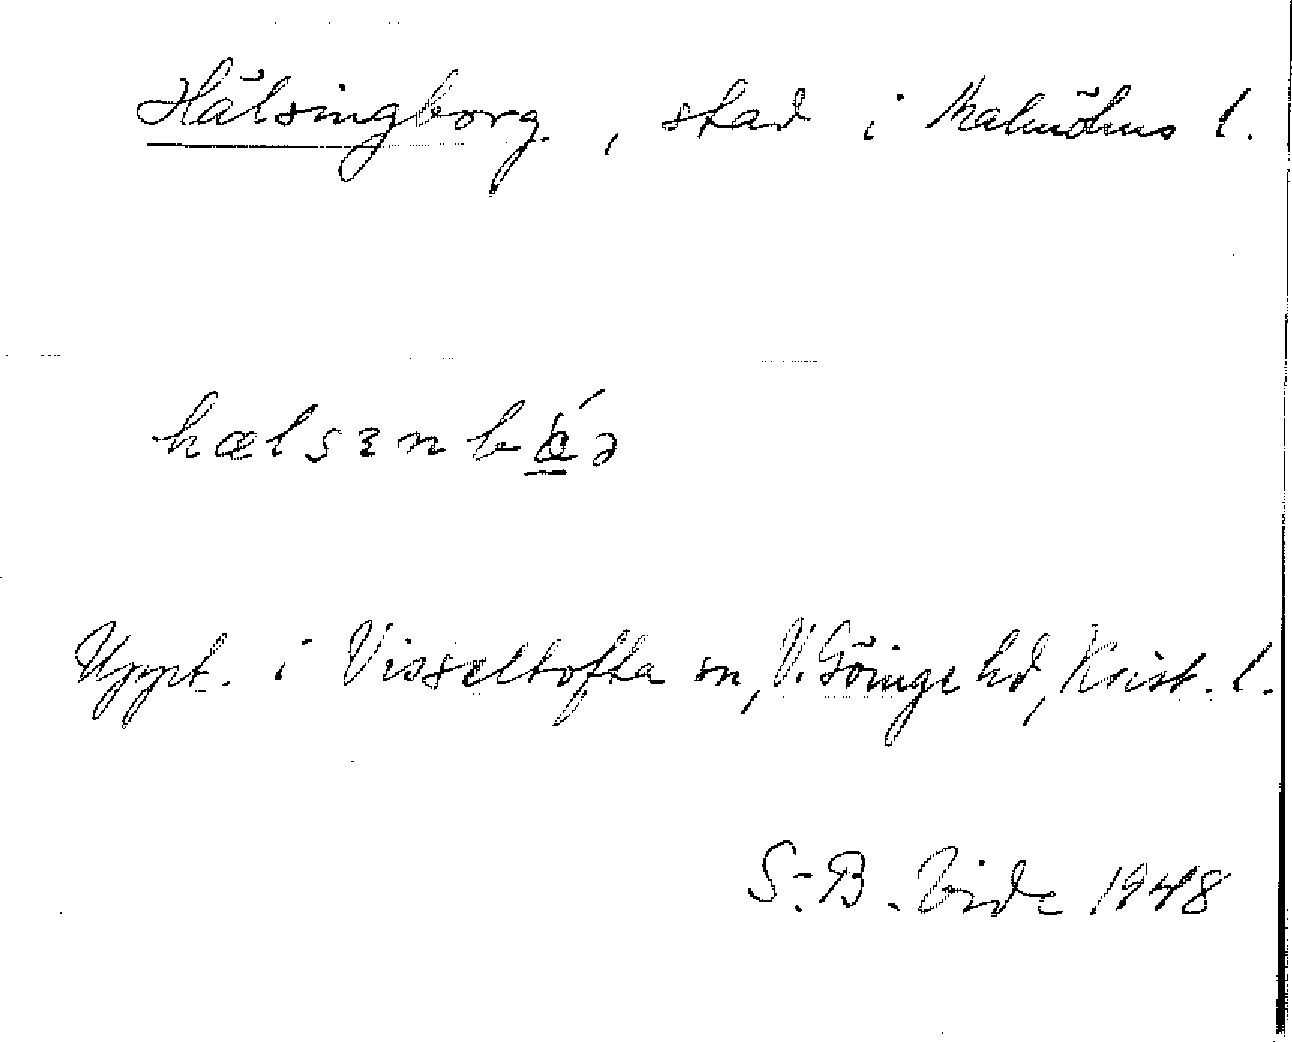 Hälsingborg, stad i Malmöhus l.
hælsɪnbɑ́ə
Uppt. i Visseltofta sn, V. Göinge hd, Krist. l.
S.-B. Vide 1948